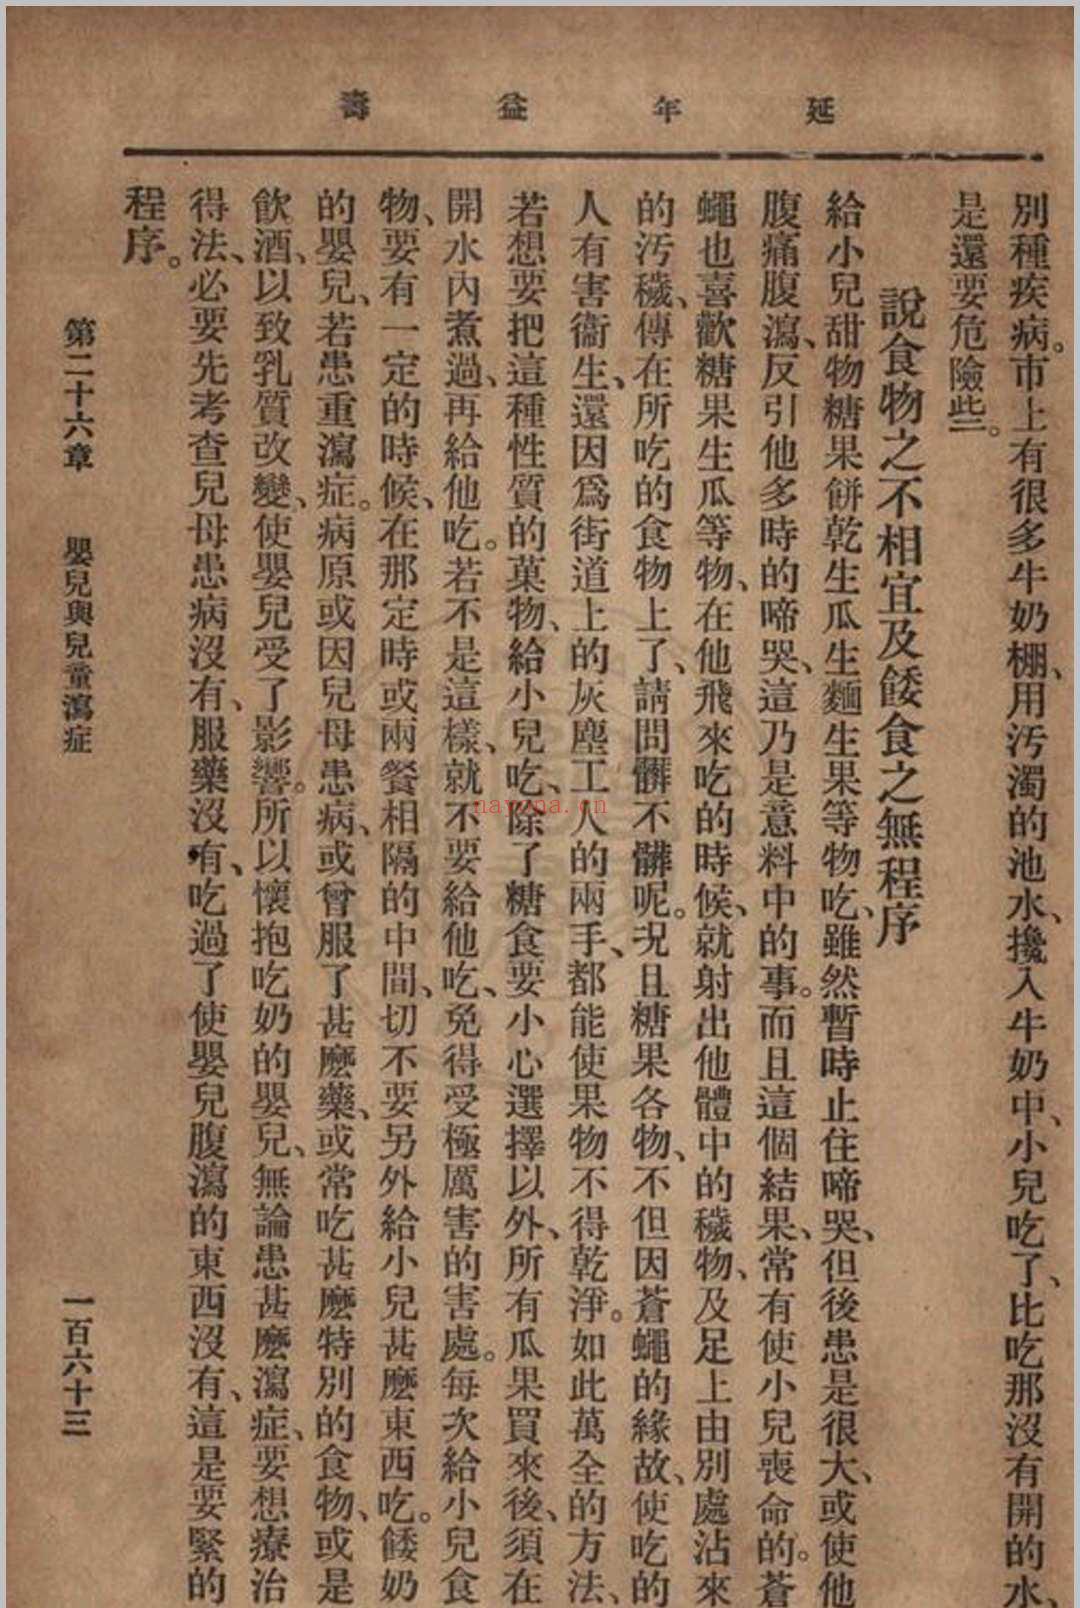 延年益壽
別種疾病。市上有很多牛奶棚、用汚濁的池水、攙入牛奶中、小兒吃了、比吃那沒有開的水、
是還要危險些。
說食物之不相宜及餧食之無程序
給小兒甜物糖果餅乾生瓜生麵生果等物吃、雖然暫時止住啼哭、但後患是很大、或使他
腹痛腹瀉、反引他多時的啼哭、這乃是意料中的事。而且這個結果、常有使小兒喪命的。蒼
蠅也喜歡糖果生瓜等物、在他飛來吃的時候、就射出他體中的穢物、及足上由別處沾來
的汚穢、傳在所吃的食物上了、請問髒不髒呢。況且糖果各物、不但因蒼蠅的緣故、使吃的
人有害衞生、還因爲街道上的灰塵工人的兩手、都能使果物不得乾淨。如此萬全的方法、
若想要把這種性質的菓物、給小兒吃、除了糖食要小心選擇以外、所有瓜果買來後、須在
開水內煮過、再給他吃。若不是這樣、就不要給他吃、免得受極厲害的害處。每次給小兒食
物、要有一定的時候、在那定時或兩餐相隔的中間、切不要另外給小兒甚麽東西吃。餧奶
的嬰兒、若患重瀉症。病原或因兒母患病、或曾服了甚麽藥、或常吃甚麽特別的食物、或是
飲酒、以致乳質改變、使嬰兒受了影響。所以懷抱吃奶的嬰兒、無論患甚麽瀉症、要想療治
得法、必要先考查兒母患病沒有、服藥沒有、吃過了使嬰兒腹瀉的東西沒有、這是要緊的
程序。
第二十六章　嬰兒與兒童瀉症　一百六十三
nayona.cn